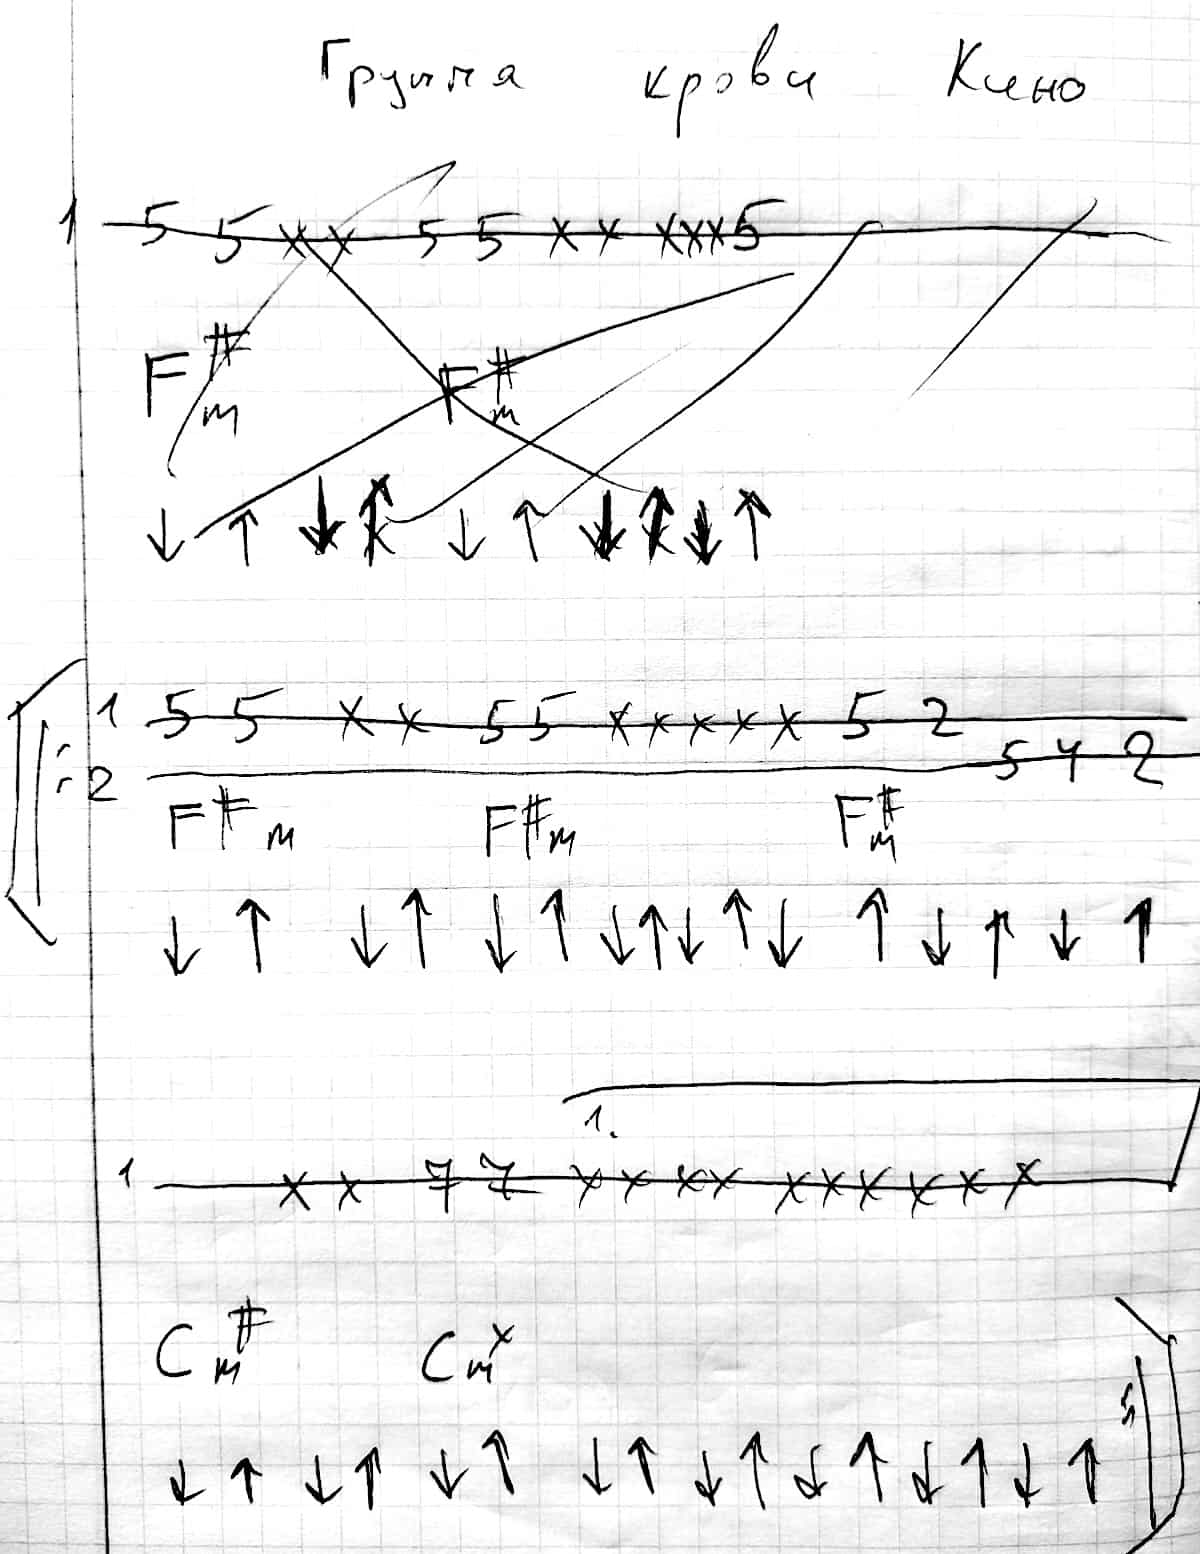 Группа крови Кино
1 5 5 x x 5 5 x x x x x 5
F#m F#m
↓ ↑ ↓ ↑ ↓ ↑ ↓ ↑ ↓ ↑
1 5 5 x x 5 5 x x x x x 5 2
2 5 4 2
F#m F#m F#m
↓ ↑ ↓ ↑ ↓ ↑ ↓ ↑ ↓ ↑ ↓ ↑ ↓ ↑ ↓ ↑
1.
1 x x 7 7 x x x x x x x x x x
C#m Cxm
↓ ↑ ↓ ↑ ↓ ↑ ↓ ↑ ↓ ↑ ↓ ↑ ↓ ↑ ↓ ↑